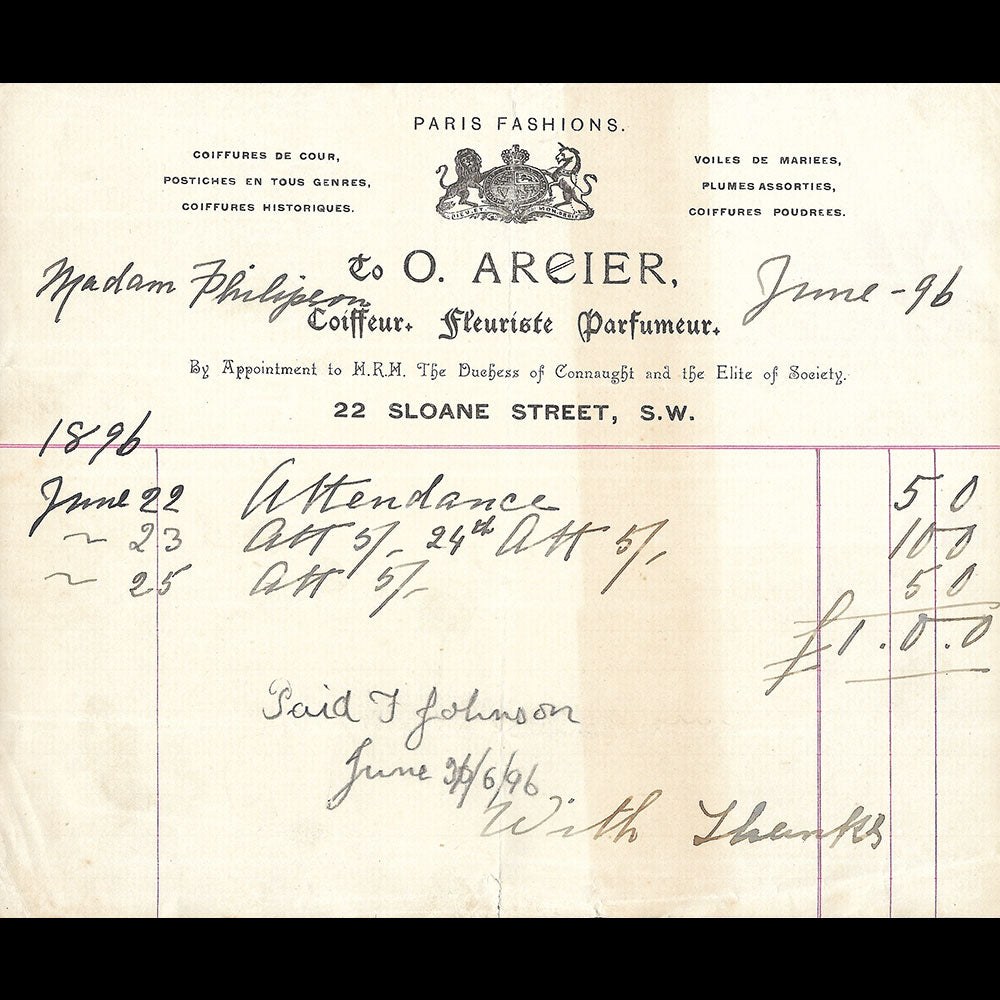 PARIS FASHIONS.
COIFFURES DE COUR,
POSTICHES EN TOUS GENRES,
COIFFURES HISTORIQUES.
VOILES DE MARIEES,
PLUMES ASSORTIES,
COIFFURES POUDREES.
DIEU ET MON DROIT
Madam Philipson
June - 96
To O. ARCIER,
Coiffeur. Fleuriste Parfumeur.
By Appointment to H.R.H. The Duchess of Connaught and the Elite of Society.
22 SLOANE STREET, S.W.
1896
June 22 Attendance 5 0
~ 23 Att 5/- 24th Att 5/- 10 0
~ 25 Att 5/- 5 0
£1.0.0
Paid F Johnson
June /6/96
With Thanks